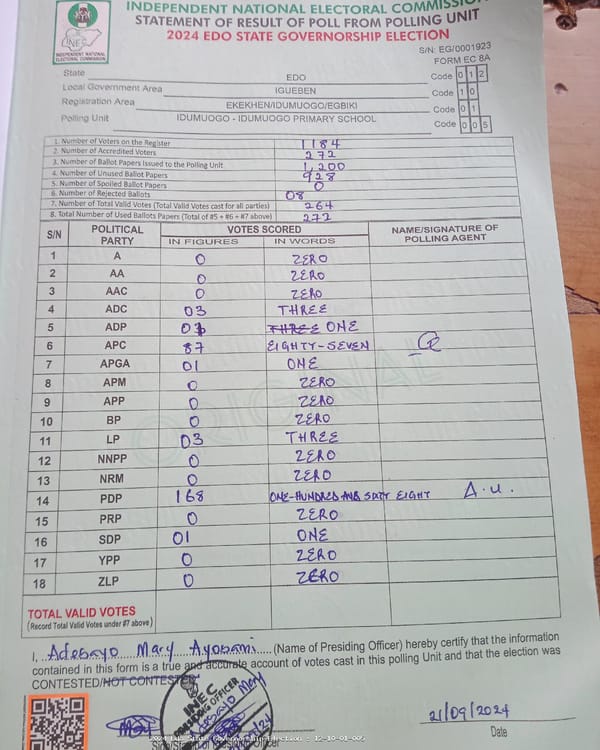 INDEPENDENT NATIONAL ELECTORAL COMMISSION
STATEMENT OF RESULT OF POLL FROM POLLING UNIT
2024 EDO STATE GOVERNORSHIP ELECTION
INEC
INDEPENDENT NATIONAL ELECTORAL COMMISSION
S/N: EG/0001923
FORM EC 8A
State EDO Code 0 1 2
Local Government Area IGUEBEN Code 1 0
Registration Area EKEKHEN/IDUMUOGO/EGBIKI Code 0 1
Polling Unit IDUMUOGO - IDUMUOGO PRIMARY SCHOOL Code 0 0 5
1. Number of Voters on the Register 1184
2. Number of Accredited Voters 272
3. Number of Ballot Papers Issued to the Polling Unit 1,200
4. Number of Unused Ballot Papers 928
5. Number of Spoiled Ballot Papers 0
6. Number of Rejected Ballots 08
7. Number of Total Valid Votes (Total Valid Votes cast for all parties) 264
8. Total Number of Used Ballots Papers (Total of #5 + #6 + #7 above) 272
S/N POLITICAL PARTY VOTES SCORED NAME/SIGNATURE OF POLLING AGENT
IN FIGURES IN WORDS
1 A 0 ZERO
2 AA 0 ZERO
3 AAC 0 ZERO
4 ADC 03 THREE
5 ADP 01 THREE ONE
6 APC 87 EIGHTY-SEVEN
7 APGA 01 ONE
8 APM 0 ZERO
9 APP 0 ZERO
10 BP 0 ZERO
11 LP 03 THREE
12 NNPP 0 ZERO
13 NRM 0 ZERO
14 PDP 168 ONE-HUNDRED AND SIXTY EIGHT A.U.
15 PRP 0 ZERO
16 SDP 01 ONE
17 YPP 0 ZERO
18 ZLP 0 ZERO
ORIGINAL
TOTAL VALID VOTES
(Record Total Valid Votes under #7 above)
I, Adebayo Mary Ayobami (Name of Presiding Officer) hereby certify that the information
contained in this form is a true and accurate account of votes cast in this polling Unit and that the election was
CONTESTED/NOT CONTESTED
INEC
PRESIDING OFFICER
Adebayo Mary
21/09/2024
Date
2024 Edo State Governorship Election - 12-10-01-005